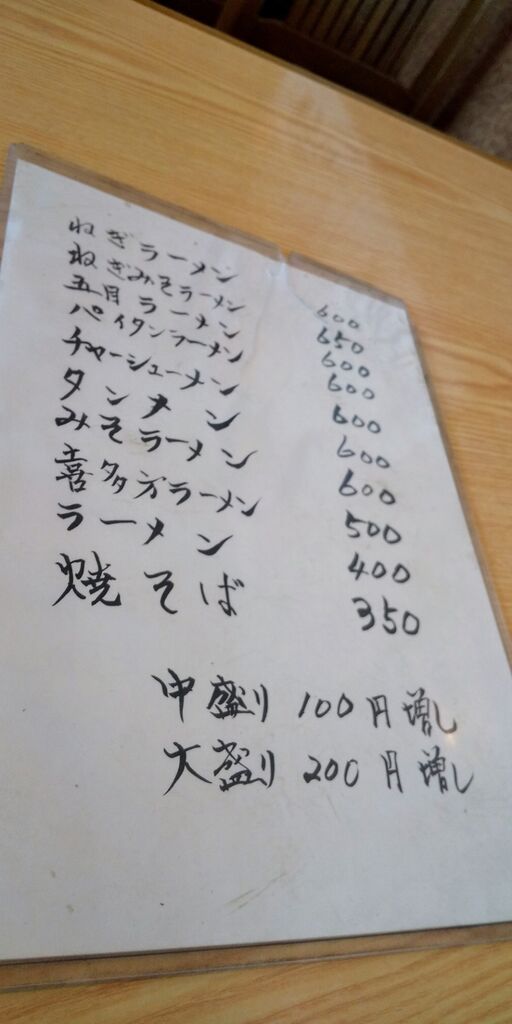 ねぎラーメン 600
ねぎみそラーメン 650
五目ラーメン 600
パイタンラーメン 600
チャーシューメン 600
タンメン 600
みそラーメン 600
喜多方ラーメン 500
ラーメン 400
焼そば 350
中盛り 100円増し
大盛り 200円増し